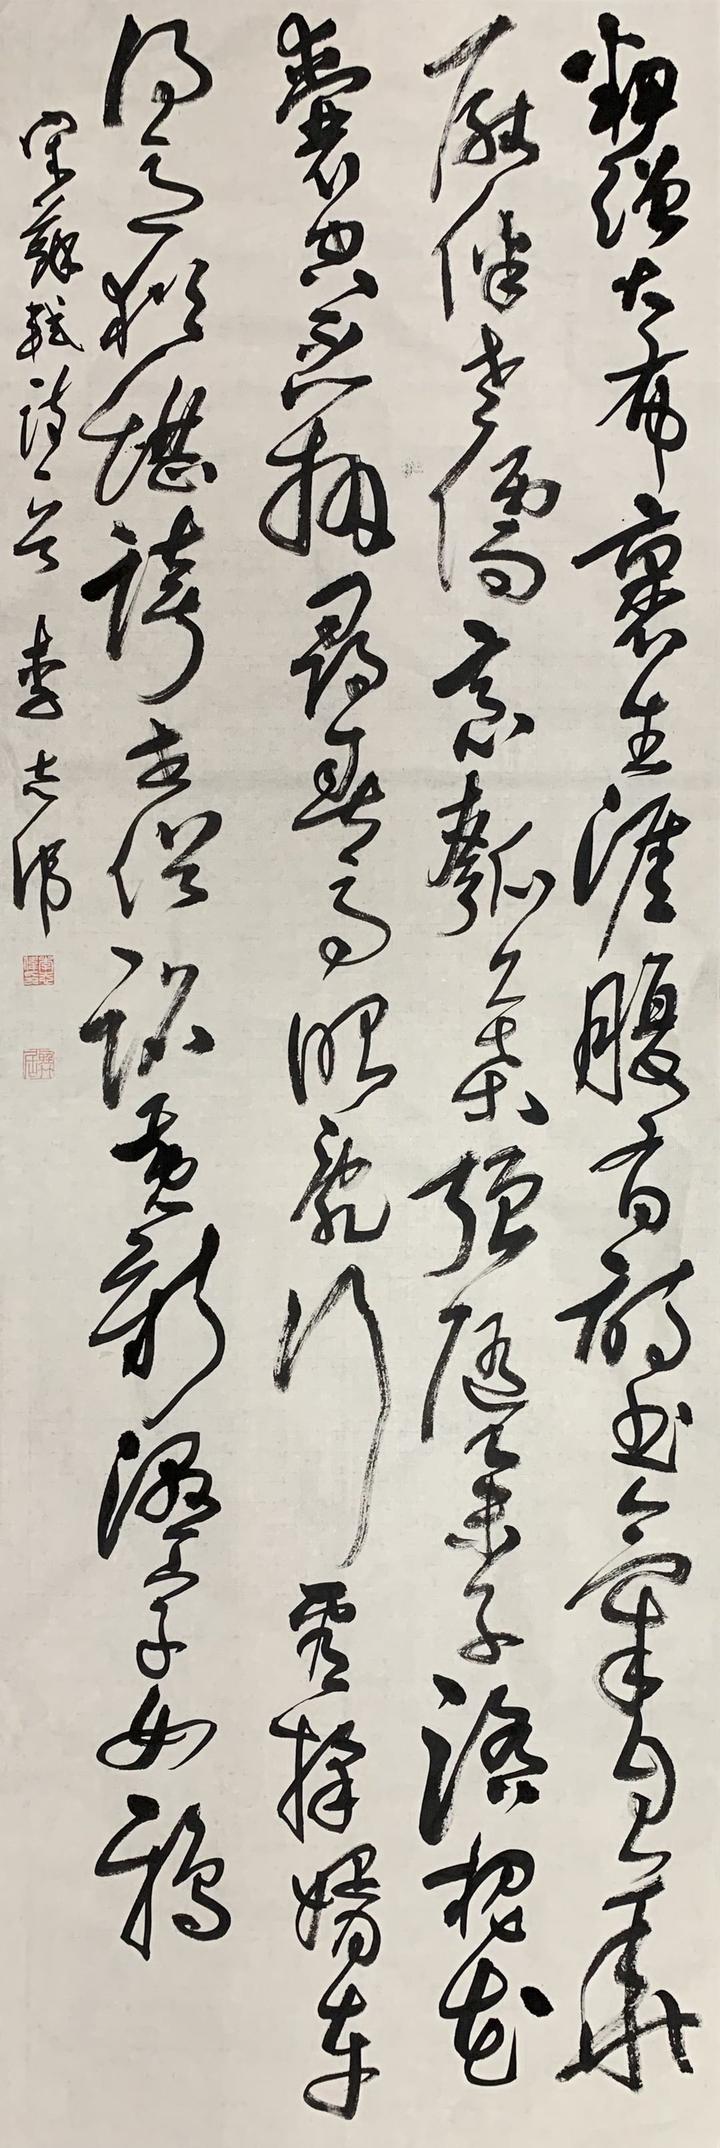 粗繒大布裹生涯腹有詩書氣自華
厭伴老儒烹瓠葉強隨舉子踏槐花
囊空不辦尋春馬眼亂行看擇婿車
得意猶堪誇世俗詔黃新濕字如鴉
宋蘇軾詩一首 李志